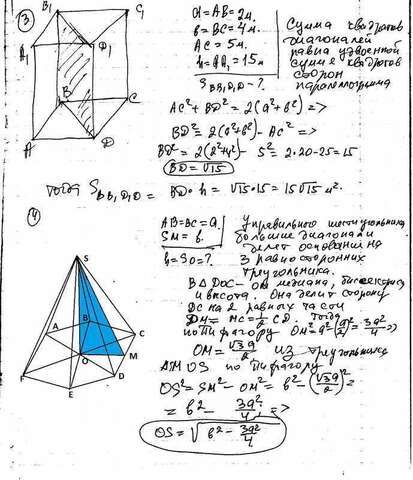 ③
B₁
C₁
A₁
D₁
B
C
A
D
a = AB = 2м.
b = BC = 4м.
AC = 5м.
h = BB₁ = 15м
S BB₁D₁D - ?
Сумма квадратов
диагоналей
равна удвоенной
сумме квадратов
сторон
параллелограмма
AC² + BD² = 2(a² + b²) =>
BD² = 2(a² + b²) - AC² =>
BD² = 2(2² + 4²) - 5² = 2·20 - 25 = 15
BD = √15
тогда S BB₁D₁D = BD · h = √15 · 15 = 15√15 м².
④
AB = BC = a.
SM = b.
h = SO = ?
У правильного шестиугольника
большие диагонали
делят основание на
равносторонних
треугольника.
В Δ DOC - OM медиана, биссектриса
и высота. Она делит сторону
DC на 2 равных части
DM = MC = ½ CD. Тогда
по Пифагору OM² = a² - (a/2)² = 3a²/4 =>
OM = √3a/2 из треугольника
ΔMOS по Пифагору
OS² = SM² - OM² = b² - (√3a/2)² =
= b² - 3a²/4 =>
OS = √(b² - 3a²/4)
S
A
B
C
O
M
F
D
E